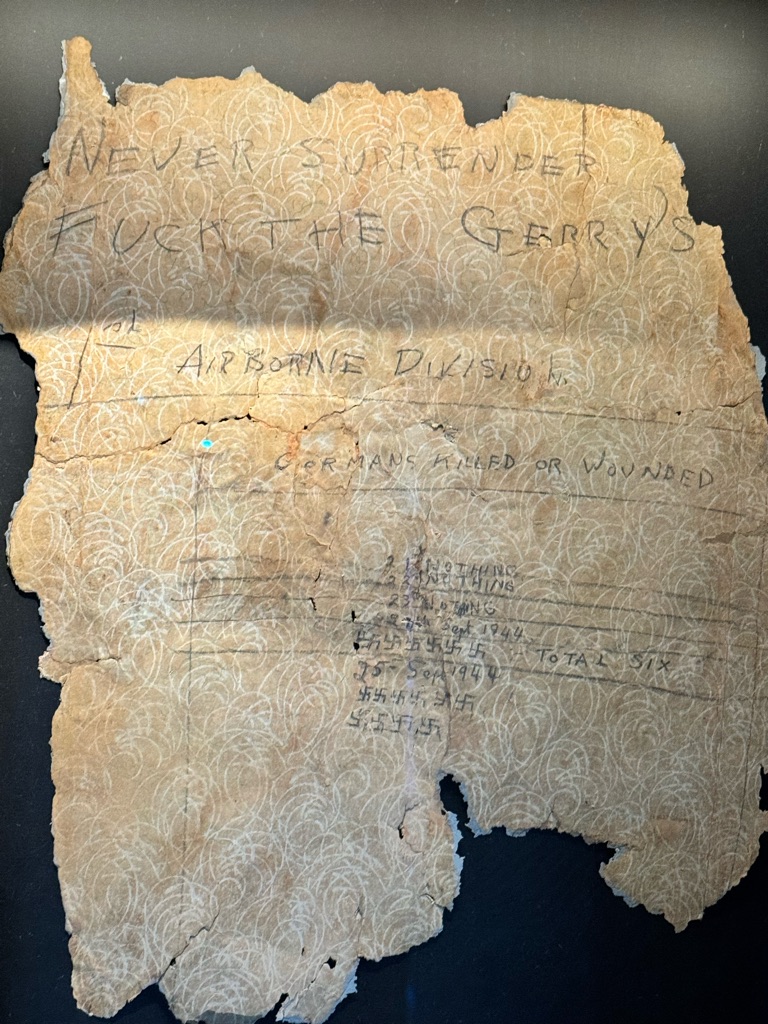 NEVER SURRENDER
FUCK THE GERRY'S
1st
AIRBORNE DIVISION.
GERMANS KILLED OR WOUNDED
21st NOTHING
22nd NOTHING
23rd NOTING
24th Sept 1944
卐卐卐卐卐卐 TOTAL SIX
25 Sept 1944
卐卐卐卐卐卐
卐卐卐卐卐